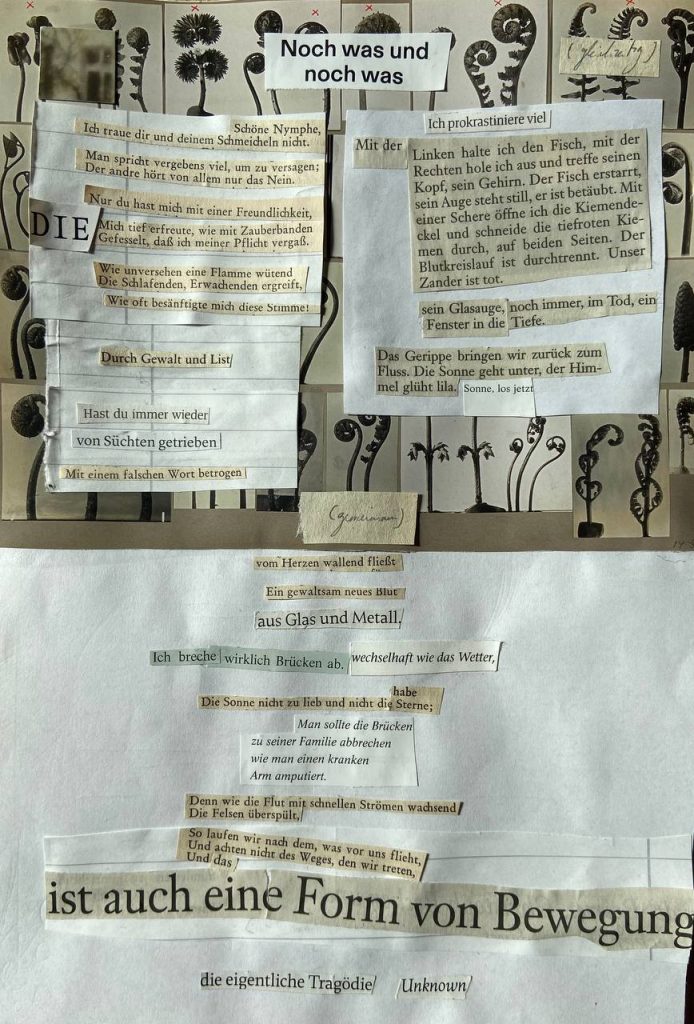 Noch was und
noch was
(gleichzeitig)
Schöne Nymphe,
Ich traue dir und deinem Schmeicheln nicht.
Man spricht vergebens viel, um zu versagen;
Der andre hört von allem nur das Nein.
Nur du hast mich mit einer Freundlichkeit,
DIE
Mich tief erfreute, wie mit Zauberbanden
Gefesselt, daß ich meiner Pflicht vergaß.
Wie unversehen eine Flamme wütend
Die Schlafenden, Erwachenden ergreift,
Wie oft besänftigte mich diese Stimme!
Durch Gewalt und List
Hast du immer wieder
von Süchten getrieben
Mit einem falschen Wort betrogen
Ich prokrastiniere viel
Mit der
Linken halte ich den Fisch, mit der
Rechten hole ich aus und treffe seinen
Kopf, sein Gehirn. Der Fisch erstarrt,
sein Auge steht still, er ist betäubt. Mit
einer Schere öffne ich die Kiemende-
ckel und schneide die tiefroten Kie-
men durch, auf beiden Seiten. Der
Blutkreislauf ist durchtrennt. Unser
Zander ist tot.
sein Glasauge, noch immer, im Tod, ein
Fenster in die Tiefe.
Das Gerippe bringen wir zurück zum
Fluss. Die Sonne geht unter, der Him-
mel glüht lila. Sonne, los jetzt
(gemeinsam)
vom Herzen wallend fließt
Ein gewaltsam neues Blut
aus Glas und Metall,
Ich breche wirklich Brücken ab. wechselhaft wie das Wetter,
habe
Die Sonne nicht zu lieb und nicht die Sterne;
Man sollte die Brücken
zu seiner Familie abbrechen
wie man einen kranken
Arm amputiert.
Denn wie die Flut mit schnellen Strömen wachsend
Die Felsen überspült,
So laufen wir nach dem, was vor uns flieht,
Und achten nicht des Weges, den wir treten,
Und das
ist auch eine Form von Bewegung
die eigentliche Tragödie Unknown